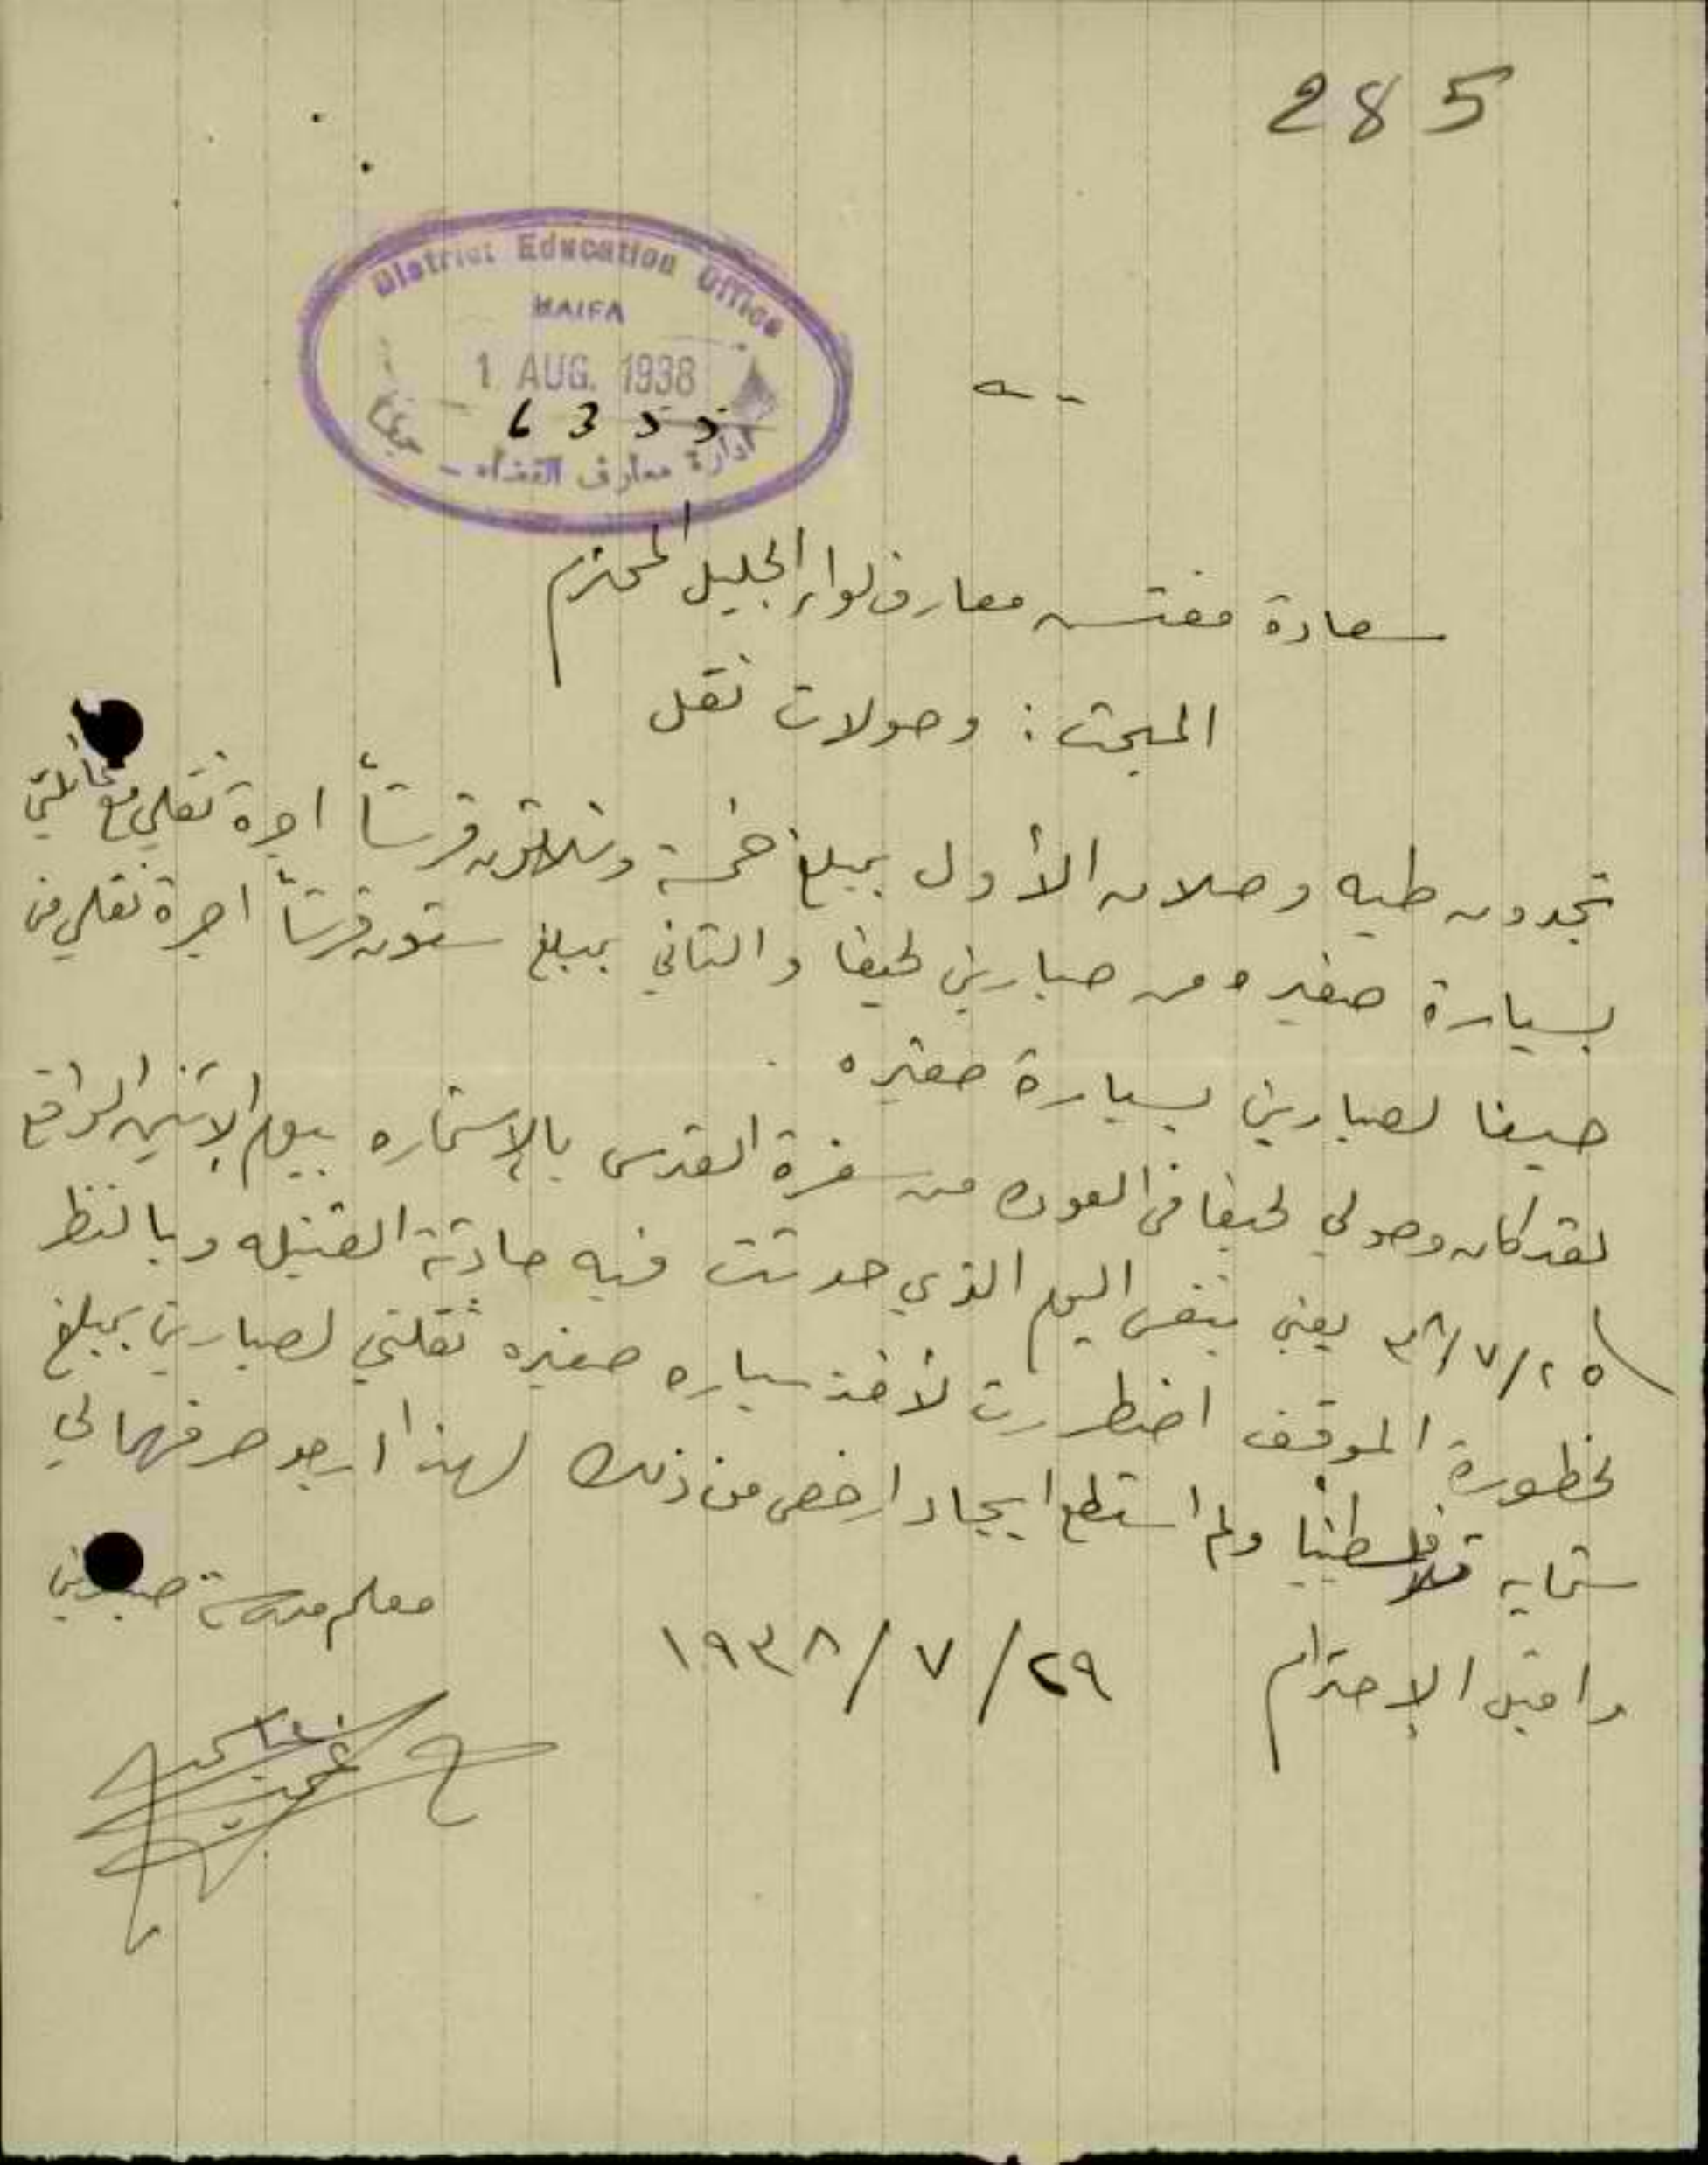 285
District Education Office
HAIFA
1 AUG. 1938
ادارة معارف القضاء - حيفا
سعادة مفتش معارف لواء الجليل المحترم
المبحث : وصولات نقل
تجدون طيه وصلان الأول بمبلغ خمسة وثلاثون قرشاً اجرة نقلي مع عائلتي
بسيارة صغيره من صبارين لحيفا والثاني بمبلغ ستون قرشاً اجرة نقلي من
حيفا لصبارين بسيارة صغيره
لقد كان وصولي لحيفا في العوده من سفرة القدس بالإستماره بيوم الإثنين الواقع
٢٥/٧/٣٨ يعني بنفس اليوم الذي حدثت فيه حادثة القنبله وبالنظر
لخطورة الموقف اضطررت لأخذ سياره صغيره نقلتني لصبارين بمبلغ
ستمايه فلسطينيا ولم استطع ايجاد ارخص من ذلك لهذا ارجو صرفهما لي
واقبل الإحترام ٢٩/٧/١٩٣٨ معلم مدرسة صبارين